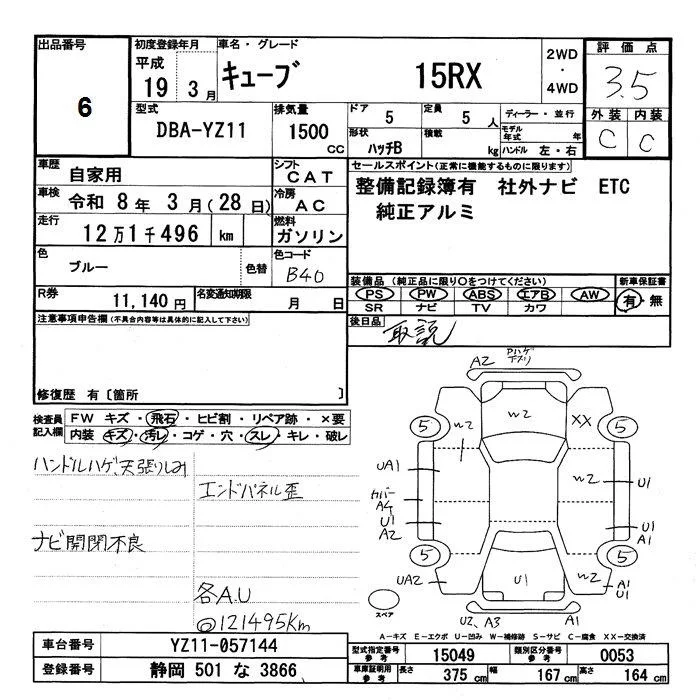 出品番号
6
初度登録年月
平成
19 3 月
車名・グレード
キューブ 15RX
2WD
・
4WD
評価点
3.5
外装 内装
C C
型式
DBA-YZ11
排気量
1500 CC
ドア 5
定員 5 人
ディーラー・並行
形状 ハッチB
積載 kg
モデル年式 年
ハンドル 左・右
車歴 自家用
シフト CAT
セールスポイント(正常に機能するものに限ります)
整備記録簿有 社外ナビ ETC
純正アルミ
車検 令和 8 年 3 月 ( 28 日)
冷房 AC
走行 12 万 1 千 496 km
燃料 ガソリン
色 ブルー 色替
色コード B40
装備品 (純正品に限り○をつけてください)
PS PW ABS エアB AW
SR ナビ TV カワ
新車保証書
有・無
R券 11,140 円
名変通知期限 月 日
後日品 取説
注意事項申告欄(不具合内容等は具体的に記入して下さい)
修復歴 有〔箇所 〕
検査員記入欄
FW キズ・飛石・ヒビ割・リペア跡・×要
内装 キズ・汚レ・コゲ・穴・スレ・キレ・破レ
ハンドルハゲ、天張りしみ
エンドパネル歪
ナビ開閉不良
各A.U
@121495Km
A2
W2
W2
XX
5
5
UA1
W2
U1
カバー
A4
U1
A2
U1
A1
5
5
UA2
U1
W2
A1
U1
スペア
U2、A3
A1
A-キズ E-エクボ U-凹み W-補修跡 S-サビ C-腐食 XX-交換済
車台番号 YZ11-057144
登録番号 静岡 501 な 3866
型式指定番号 参考 15049
類別区分番号 参考 0053
車庫証明用 参考 長さ 375 cm 幅 167 cm 高さ 164 cm